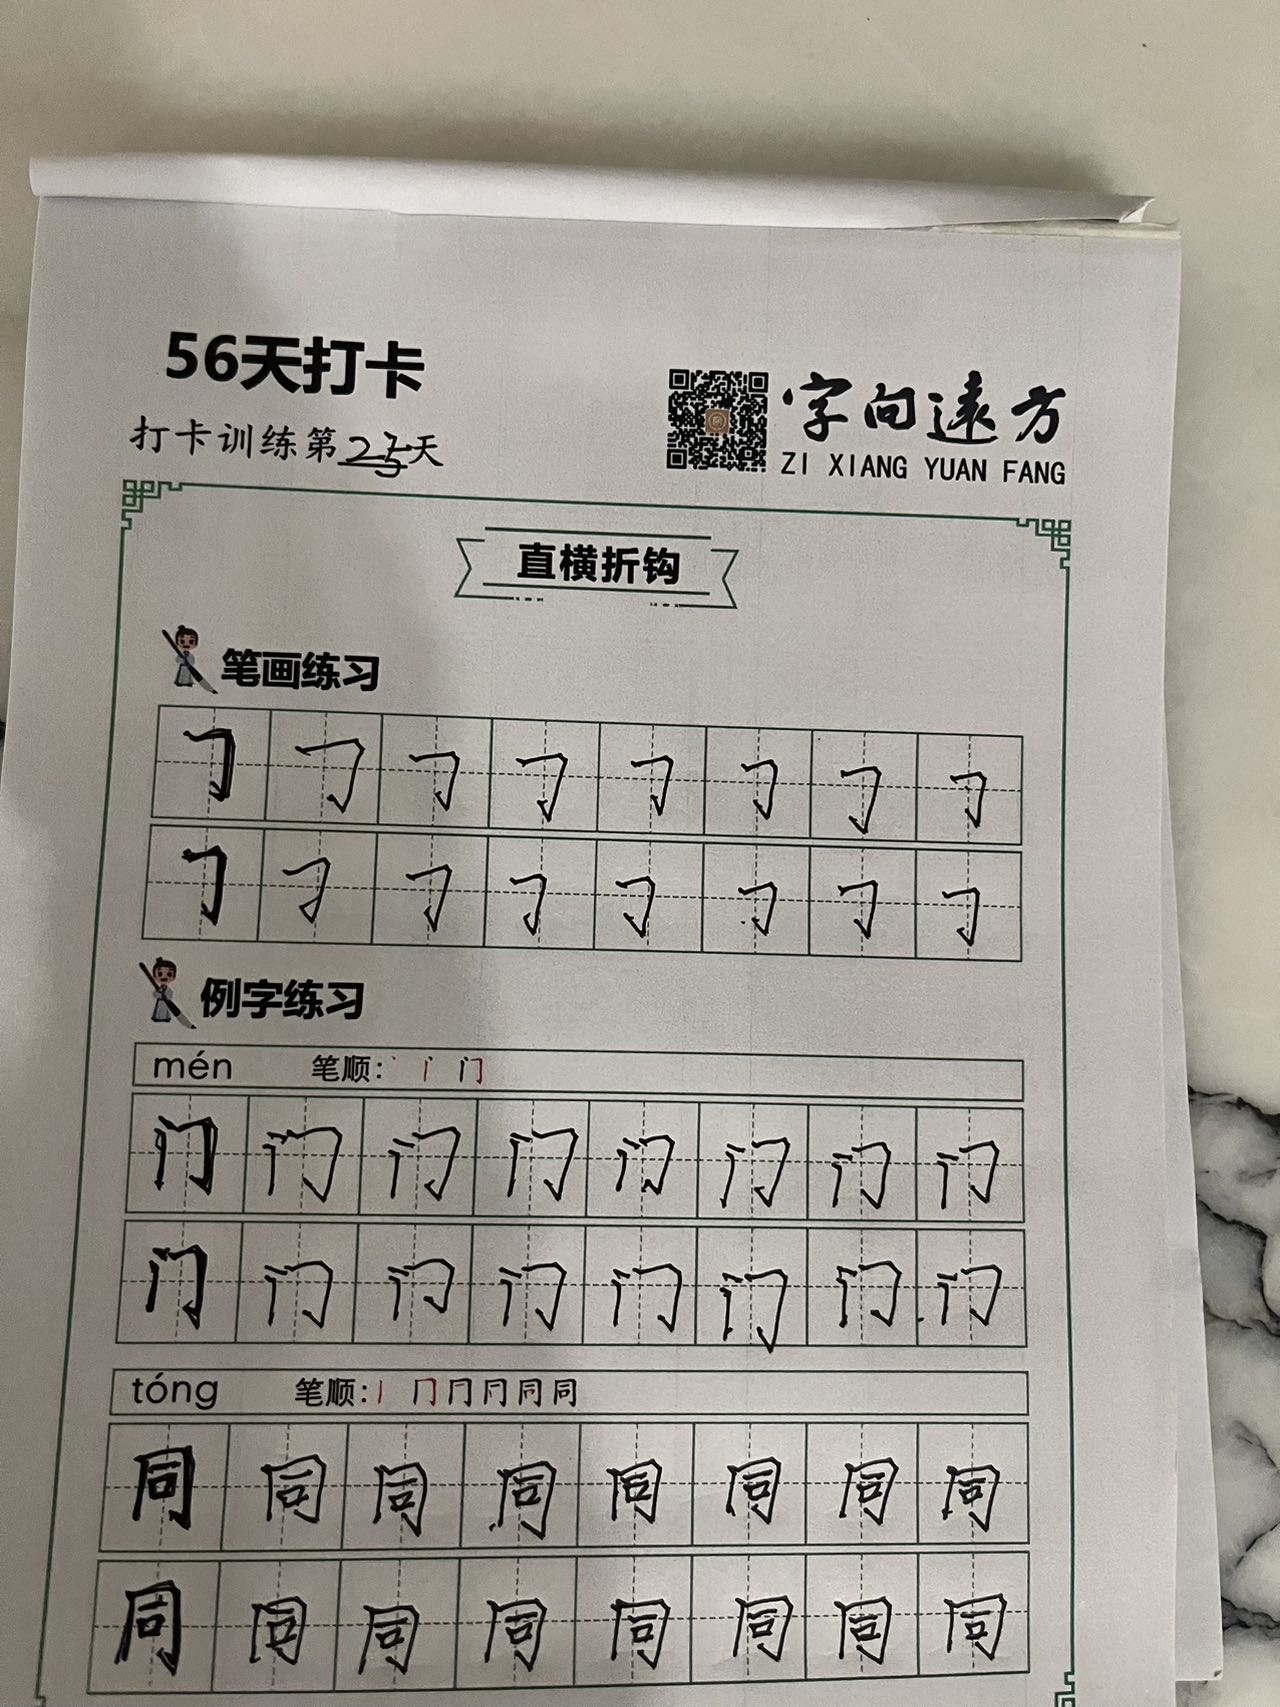 56天打卡
打卡训练第25天
字向遠方
ZI XIANG YUAN FANG
直横折钩
笔画练习
㇆ ㇆ ㇆ ㇆ ㇆ ㇆ ㇆ ㇆
㇆ ㇆ ㇆ ㇆ ㇆ ㇆ ㇆ ㇆
例字练习
mén 笔顺: 丶 门
门 门 门 门 门 门 门 门
门 门 门 门 门 门 门 门
tóng 笔顺: 丨 冂 同 同
同 同 同 同 同 同 同 同
同 同 同 同 同 同 同 同